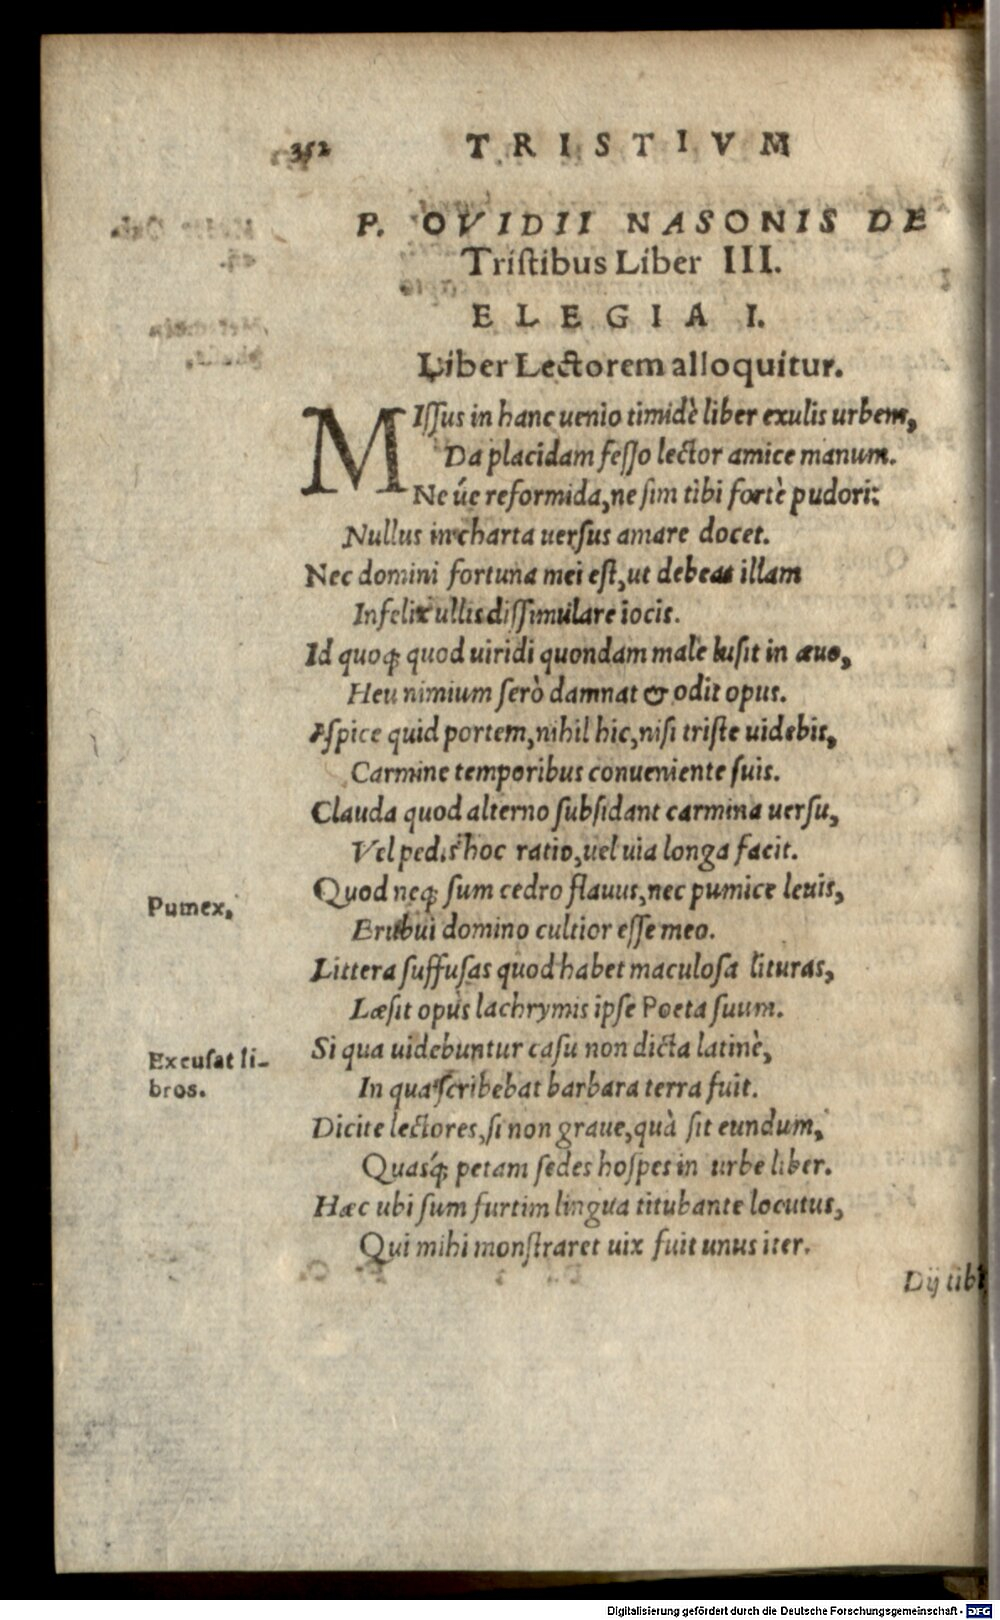 352 TRISTIVM
P. OVIDII NASONIS DE
Tristibus Liber III.
ELEGIA I.
Liber Lectorem alloquitur.
MIssus in hanc uenio timidè liber exulis urbem,
Da placidam fesso lector amice manum.
Ne úe reformida, ne sim tibi fortè pudori:
Nullus in charta uersus amare docet.
Nec domini fortuna mei est, ut debeat illam
Infelix ullis dissimulare iocis.
Id quoq; quod uiridi quondam male lusit in æuo,
Heu nimium serò damnat & odit opus.
Aspice quid portem, nihil hic, nisi triste uidebis,
Carmine temporibus conueniente suis.
Clauda quod alterno subsidant carmina uersu,
Vel pedis hoc ratio, uel uia longa facit.
Quod neq; sum cedro flauus, nec pumice leuis,
Pumex,
Erubui domino cultior esse meo.
Littera suffusas quod habet maculosa lituras,
Læsit opus lachrymis ipse Poeta suum.
Si qua uidebuntur casu non dicta latinè,
Excusat li-
bros.
In qua scribebat barbara terra fuit.
Dicite lectores, si non graue, quà sit eundum,
Quasq́; petam sedes hospes in urbe liber.
Hæc ubi sum furtim lingua titubante locutus,
Qui mihi monstraret uix fuit unus iter.
Dij tibi
Digitalisierung gefördert durch die Deutsche Forschungsgemeinschaft - DFG